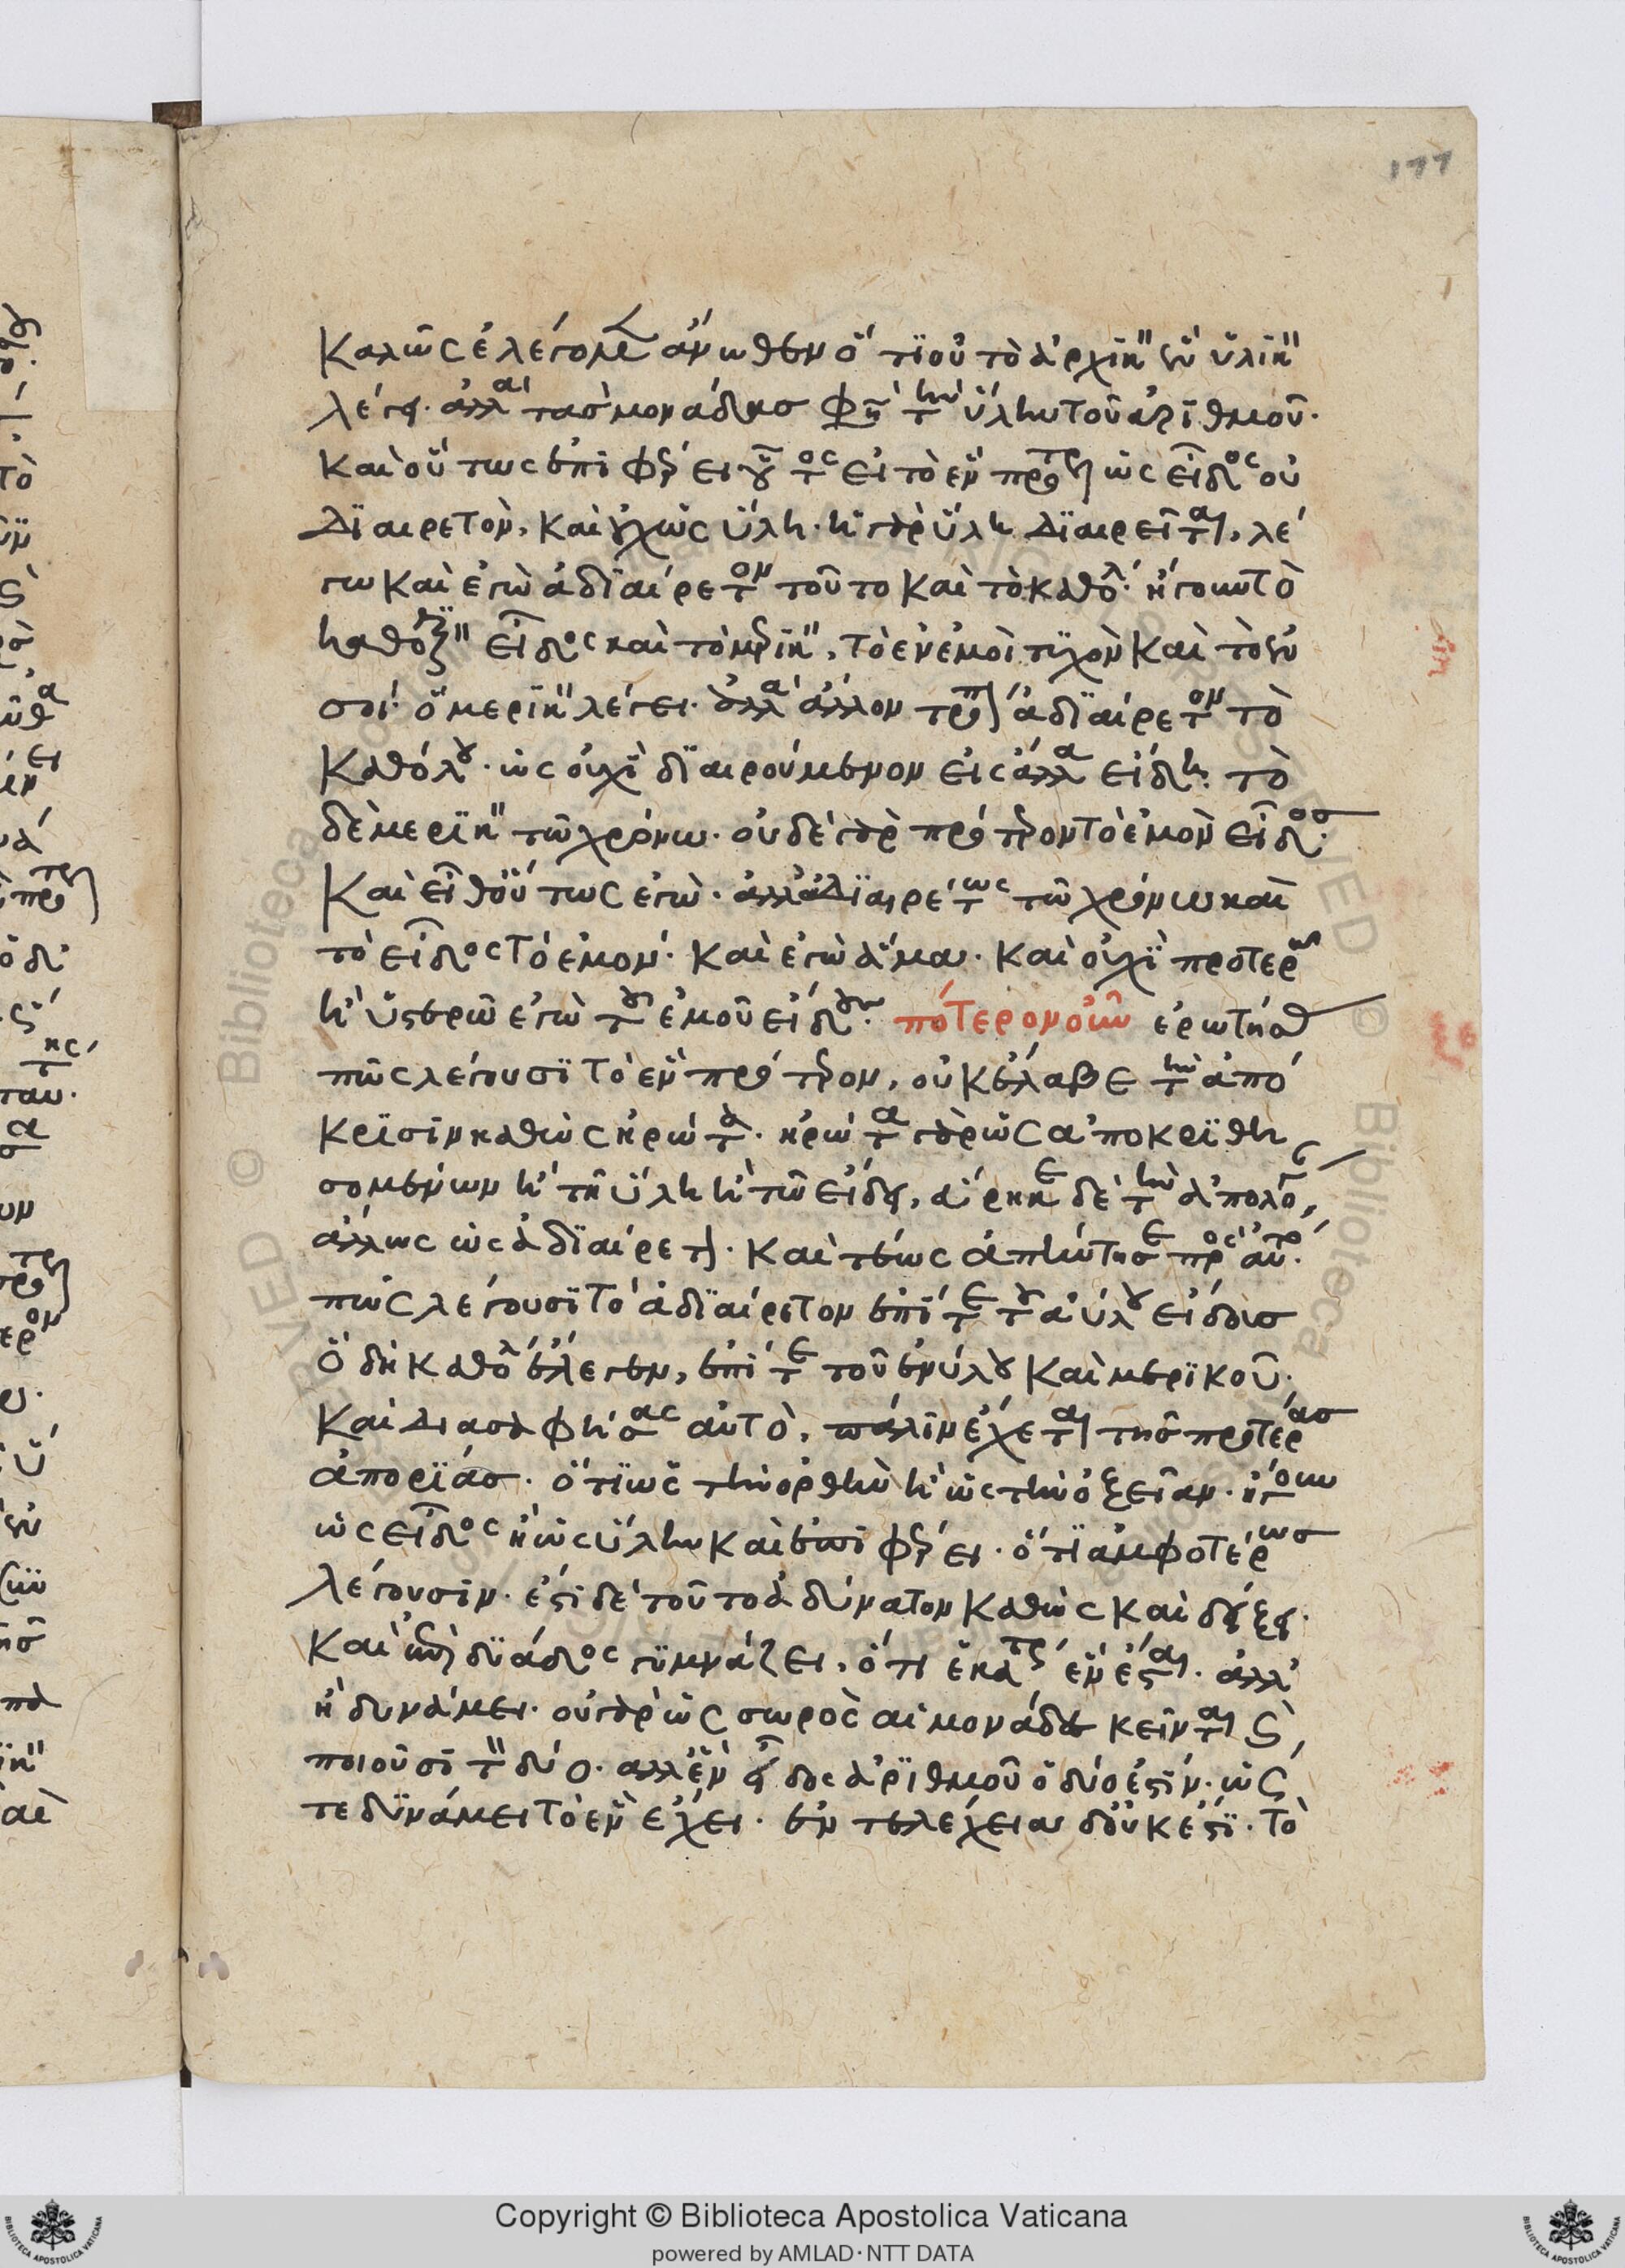 177
Καλῶς ἐλέγομεν ἄνωθεν ὅτι οὐ τὸ ἀρχικὸν ἓν ὑλικὸν
λέγει. ἀλλὰ τὰς μονάδας φησὶ τὴν ὕλην τοῦ ἀριθμοῦ.
Καὶ οὕτως ἐπιφέρει οὗτος εἰ τὸ ἓν πρότερον ὡς εἶδος οὐ
διαιρετὸν, καὶ οὐχ ὡς ὕλη. ἡ γὰρ ὕλη διαιρεῖται, λέ
γω καὶ ἐγὼ ἀδιαίρετον τοῦτο καὶ τὸ καθόλου. ἤγουν τὸ
εἶδος καὶ τὸ μερικὸν, τὸ ἐν ἐμοὶ τυχὸν καὶ τὸ ἐν
σοί. ὃ μερικὸν λέγει. ἀλλὰ ἄλλον τρόπον ἀδιαίρετον τὸ
καθόλου. ὡς οὐχὶ διαιρούμενον εἰς ἄλλα εἴδη. τὸ
δὲ μερικὸν τῶ χρόνω. οὐδὲ γὰρ πρότερον τὸ ἐμὸν εἶδος.
Καὶ εἶθ' οὕτως ἐγώ. ἀλλ' ἀδιαιρέτως τῶ χρόνω καὶ
τὸ εἶδος τὸ ἐμόν. καὶ ἐγὼ ἅμα. καὶ οὐχὶ πρότερον
ἢ ὕστερον ἐγὼ τοῦ ἐμοῦ εἴδους. πότερον οὖν ἐρωτηθεὶς
πῶς λέγουσι τὸ ἓν πρότερον, οὐκ ἔλαβε τὴν ἀπό
κρισιν καθὼς ἠρώτα. ἠρώτα γὰρ ὡς ἀποκριθη
σομένων ἢ τῆ ὕλη ἢ τῶ εἴδει, δὲ τὴν ἀπολο,
ἄλλως ὡς ἀδιαίρετον. καὶ τέως ἀπήντησε πρὸς αὐτό.
πῶς λέγουσι τὸ ἀδιαίρετον ἐπί τε τοῦ ἀύλου εἴδους
ὃ δὴ καθόλου ἔλεγεν, ἐπί τε τοῦ ἐνύλου καὶ μερικοῦ.
Καὶ διασαφήσας αὐτὸ, πάλιν ἔχεται τῆς προτέρας
ἀπορίας. ὅτι ὡς τὴν ὀρθὴν ἢ ὡς τὴν ὀξεῖαν. ἤγουν
ὡς εἶδος ἢ ὡς ὕλην καὶ ἐπιφέρει. ὅτι ἀμφοτέρως
λέγουσιν. ἔστι δὲ τοῦτο ἀδύνατον καθὼς καὶ δείξει.
Καὶ ἐπὶ δυάδος γυμνάζει, ὅτι ἑκάτερον ἕν ἐστι. ἀλλ'
ἢ δυνάμει. οὐ γὰρ ὡς σωρὸς αἱ μονάδες κεῖνται καὶ
ποιοῦσι τὸν δύο. ἀλλ' ἓν εἶδος ἀριθμοῦ ὁ δύο ἐστίν. ὥς
τε δυνάμει τὸ ἓν ἔχει. ἐντελέχεια δ' οὐκ ἔστι. τὸ
Copyright © Biblioteca Apostolica Vaticana
powered by AMLAD·NTT DATA